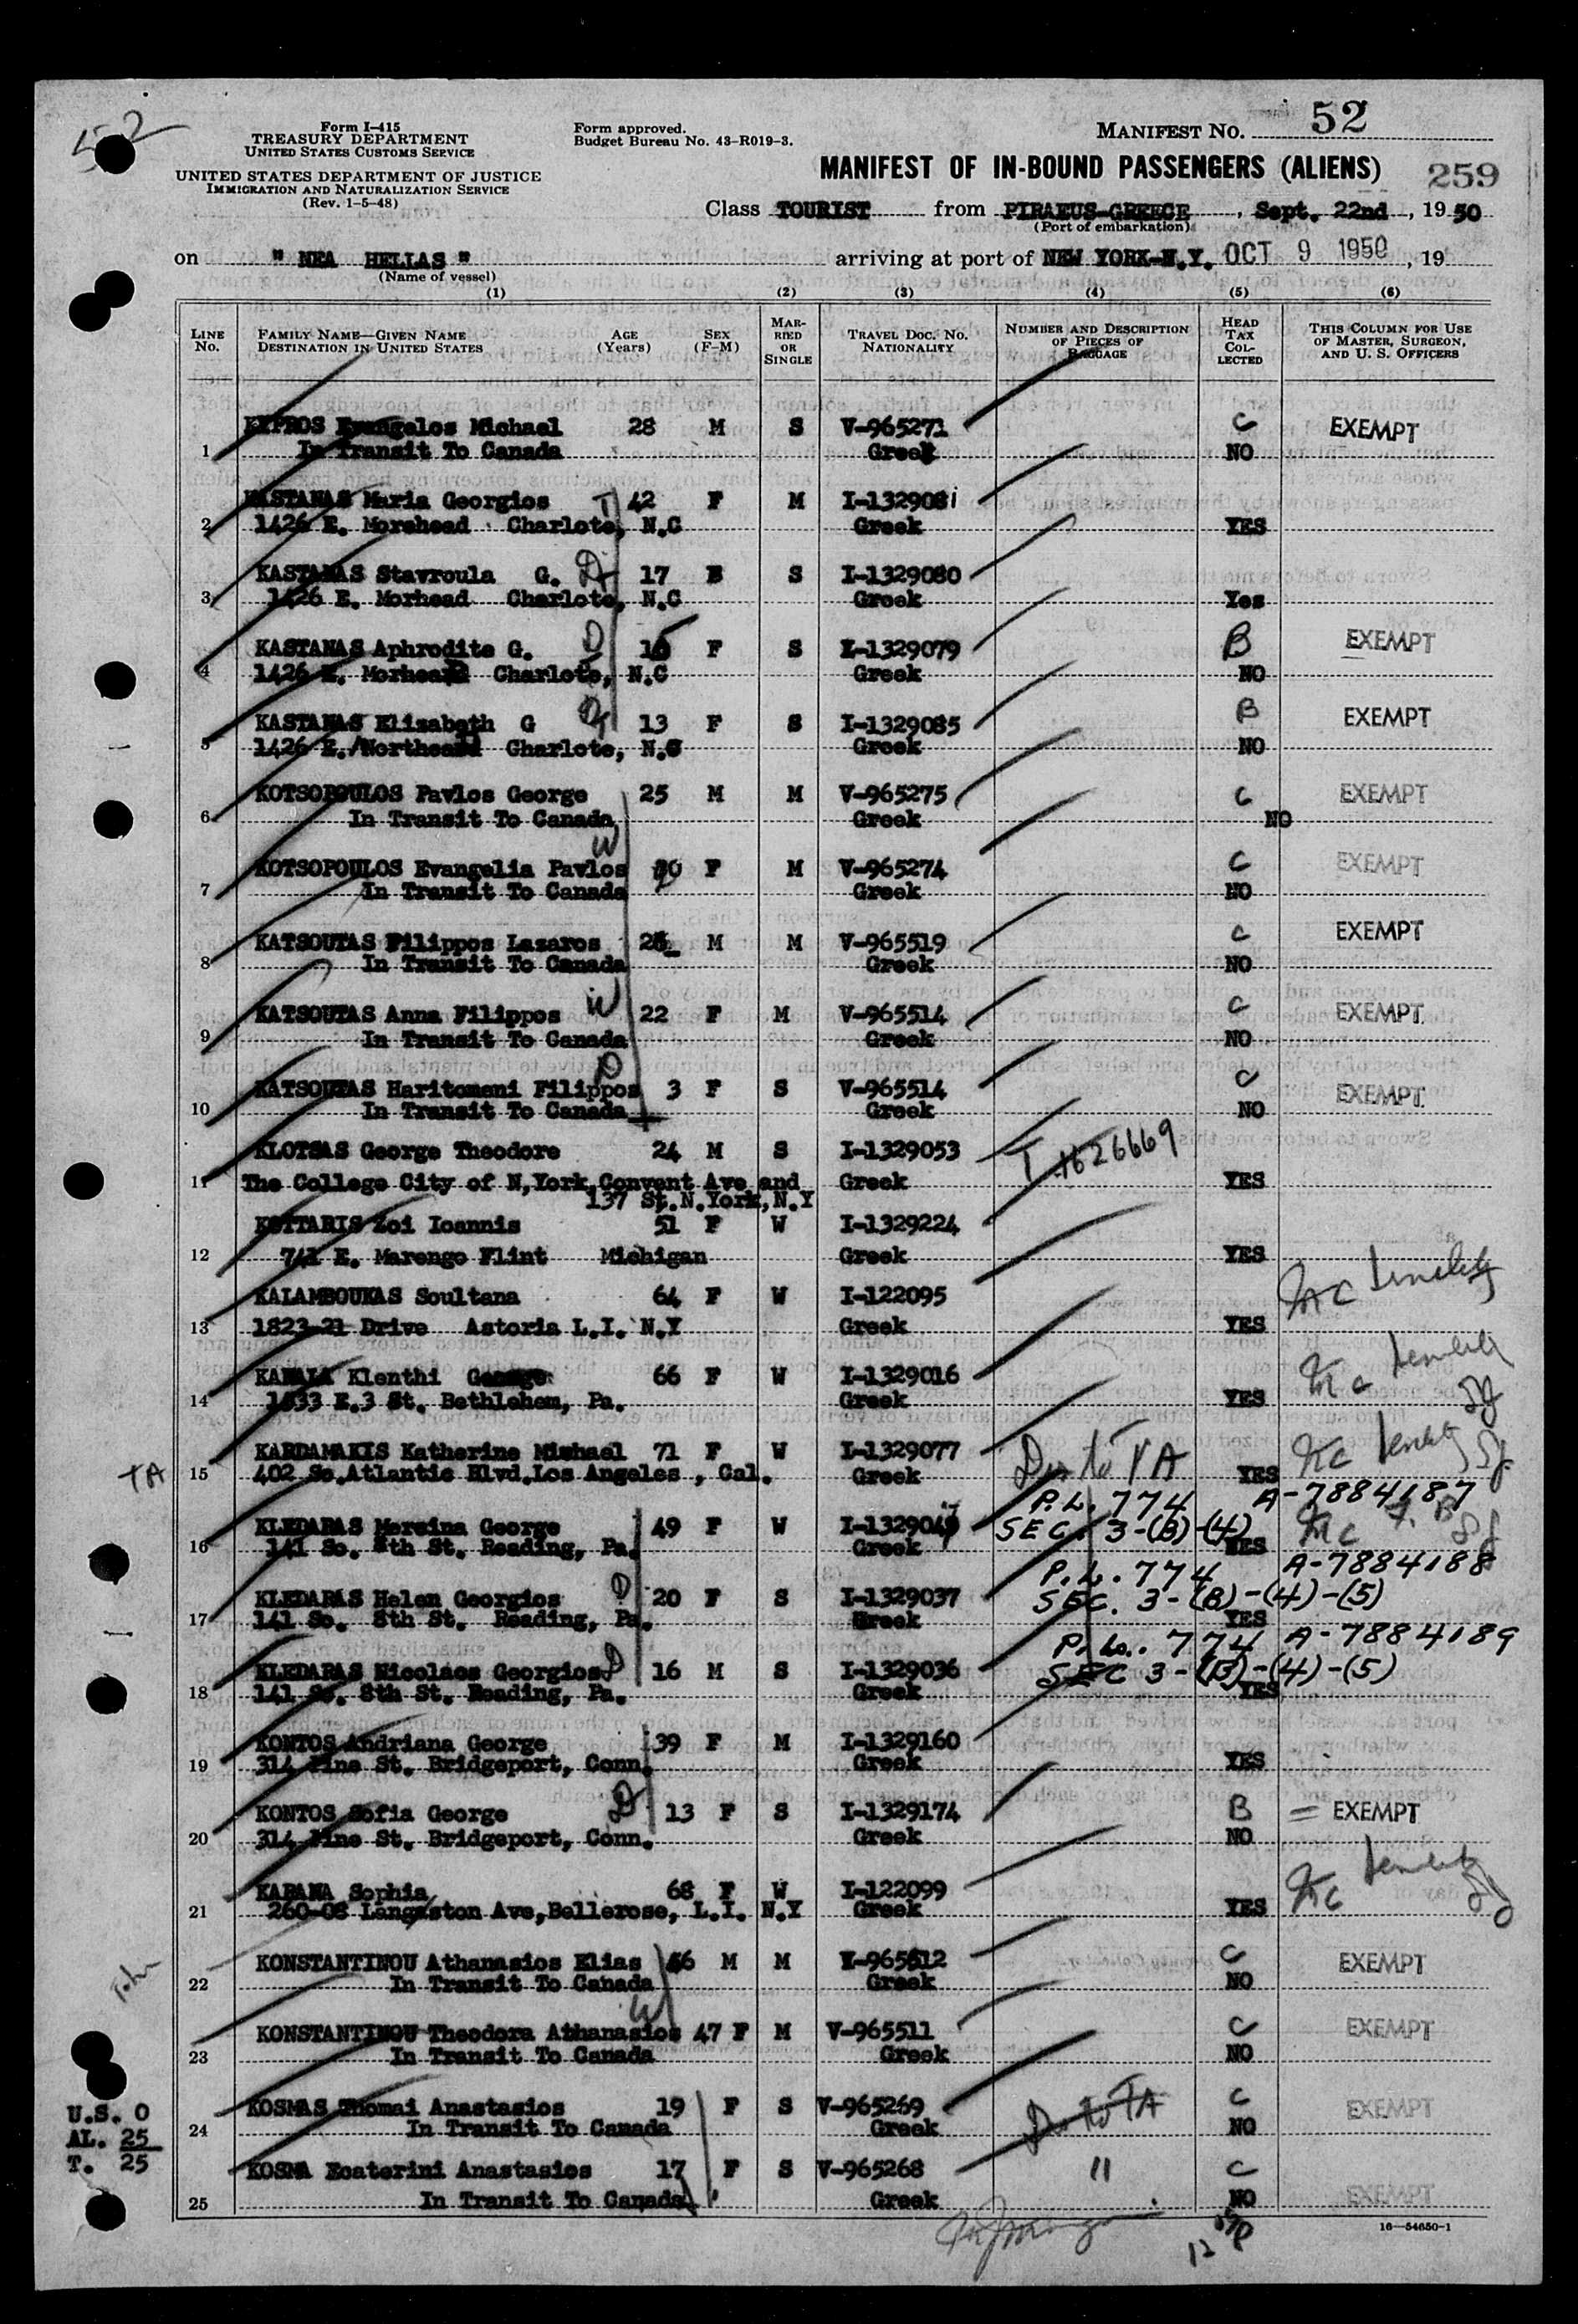 52
Form I-415
TREASURY DEPARTMENT
UNITED STATES CUSTOMS SERVICE
UNITED STATES DEPARTMENT OF JUSTICE
IMMIGRATION AND NATURALIZATION SERVICE
(Rev. 1-5-48)
Form approved.
Budget Bureau No. 43-R019-3.
MANIFEST NO. 52
MANIFEST OF IN-BOUND PASSENGERS (ALIENS) 259
Class TOURIST from PIRAEUS-GREECE, Sept. 22nd, 19 50
(Port of embarkation)
on " NEA HELLAS " arriving at port of NEW YORK-N.Y. OCT 9 1950, 19
(Name of vessel)
(1) (2) (3) (4) (5) (6)
LINE No. FAMILY NAME—GIVEN NAME DESTINATION IN UNITED STATES AGE (Years) SEX (F-M) MARRIED OR SINGLE TRAVEL DOC. NO. NATIONALITY NUMBER AND DESCRIPTION OF PIECES OF BAGGAGE HEAD TAX COLLECTED THIS COLUMN FOR USE OF MASTER, SURGEON, AND U. S. OFFICERS
KYPROS Evangelos Michael 28 M S V-965271 C EXEMPT
1 In Transit To Canada Greek NO
KASTANAS Maria Georgios T 42 F M I-1329081
2 1426 E. Morehead Charlote, N.C Greek YES
KASTANAS Stavroula G. D 17 S I-1329080
3 1426 E. Morhead Charlote, N.C Greek Yes
KASTANAS Aphrodite G. D 15 F S I-1329079 B EXEMPT
4 1426 E. Morhead Charlote, N.C Greek NO
KASTANAS Elizabeth G D 13 F S I-1329085 B EXEMPT
5 1426 E. Northead Charlote, N.C Greek NO
KOTSOPOULOS Pavlos George 25 M M V-965275 C EXEMPT
6 In Transit To Canada Greek NO
KOTSOPOULOS Evangelia Pavlos W F M V-965274 C EXEMPT
7 In Transit To Canada Greek NO
KATSOUTAS Filippos Lazaros M M V-965519 C EXEMPT
8 In Transit To Canada Greek NO
KATSOUTAS Anna Filippos W 22 F M V-965514 C EXEMPT
9 In Transit To Canada Greek NO
KATSOUTAS Haritomeni Filippos D 3 F S V-965514 C EXEMPT
10 In Transit To Canada Greek NO
KLOTSAS George Theodore 24 M S I-1329053 T 1626669
11 The College City of N,York,Convent Ave and Greek YES
137 St.N.York,N.Y
KOTTARIS Zoi Ioannis 51 F W I-1329224
12 741 E. Marengo Flint Michigan Greek YES
KALAMBOUKAS Soultana 64 F W I-122095
13 1823-21 Drive Astoria L.I. N.Y Greek YES
Klenthi George 66 F W I-1329016
14 1833 E.3 St. Bethlehem, Pa. Greek YES
KARDAMAKIS Katherine Michael 71 F W I-1329077
TA 15 402 So.Atlantic Blvd.Los Angeles, Cal. Greek YES
P.L. 774 A-7884187
KLEDARAS Mersina George 49 F W SEC. 3-(B)-(4)
16 141 So. 8th St. Reading, Pa. Greek YES
P.L. 774 A-7884188
KLEDARAS Helen Georgios D 20 F S I-1329037 SEC. 3-(B)-(4)-(5)
17 141 So. 8th St. Reading, Pa. Greek YES
P.L. 774 A-7884189
KLEDARAS Nicolaos Georgios D 16 M S I-1329036 SEC 3-(B)-(4)-(5)
18 141 So. 8th St. Reading, Pa. Greek YES
KONTOS Andriana George 39 F M I-1329160
19 314 Pine St. Bridgeport, Conn. Greek YES
KONTOS Sofia George D 13 F S I-1329174 B EXEMPT
20 314 Pine St. Bridgeport, Conn. Greek NO
Sophia 68 F W I-122099
21 260-08 Langaston Ave,Bellerose, L.I. N.Y Greek YES
KONSTANTINOU Athanasios Elias M M V-965512 C EXEMPT
22 In Transit To Canada Greek NO
KONSTANTINOU Theodora Athanasios W 47 F M V-965511 C EXEMPT
23 In Transit To Canada Greek NO
KOSMAS Thomai Anastasios 19 F S V-965269 C EXEMPT
24 In Transit To Canada Greek NO
KOSMA Ecaterini Anastasios 17 F S V-965268 " C EXEMPT
25 In Transit To Canada Greek NO EXEMPT
U.S. 0
AL. 25
T. 25
16—54650-1